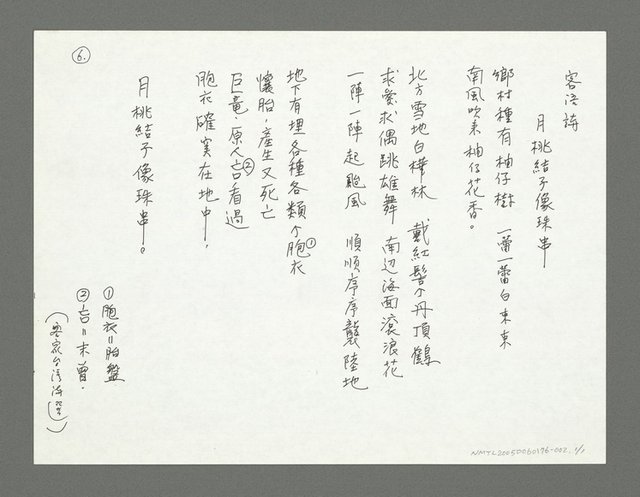 6.
客语詩
月桃結子像珠串
鄉村種有柚仔樹 一蕾一蕾白束束
南風吹来柚仔花香。
北方雪地白樺林 戴紅髻个丹頂鶴
求愛求偶跳雄舞 南辺海面滾浪花
一陣一陣起颱風 順順序序襲陸地
地下有埋各種各類个胞衣①
懷胎，產生又死亡
巨竜，原人吂②看過
胞衣確実在地中，
月桃結子像珠串。
①胞衣＝胎盤
②吂＝未曾．
NMTL20050060176-002. 1/2